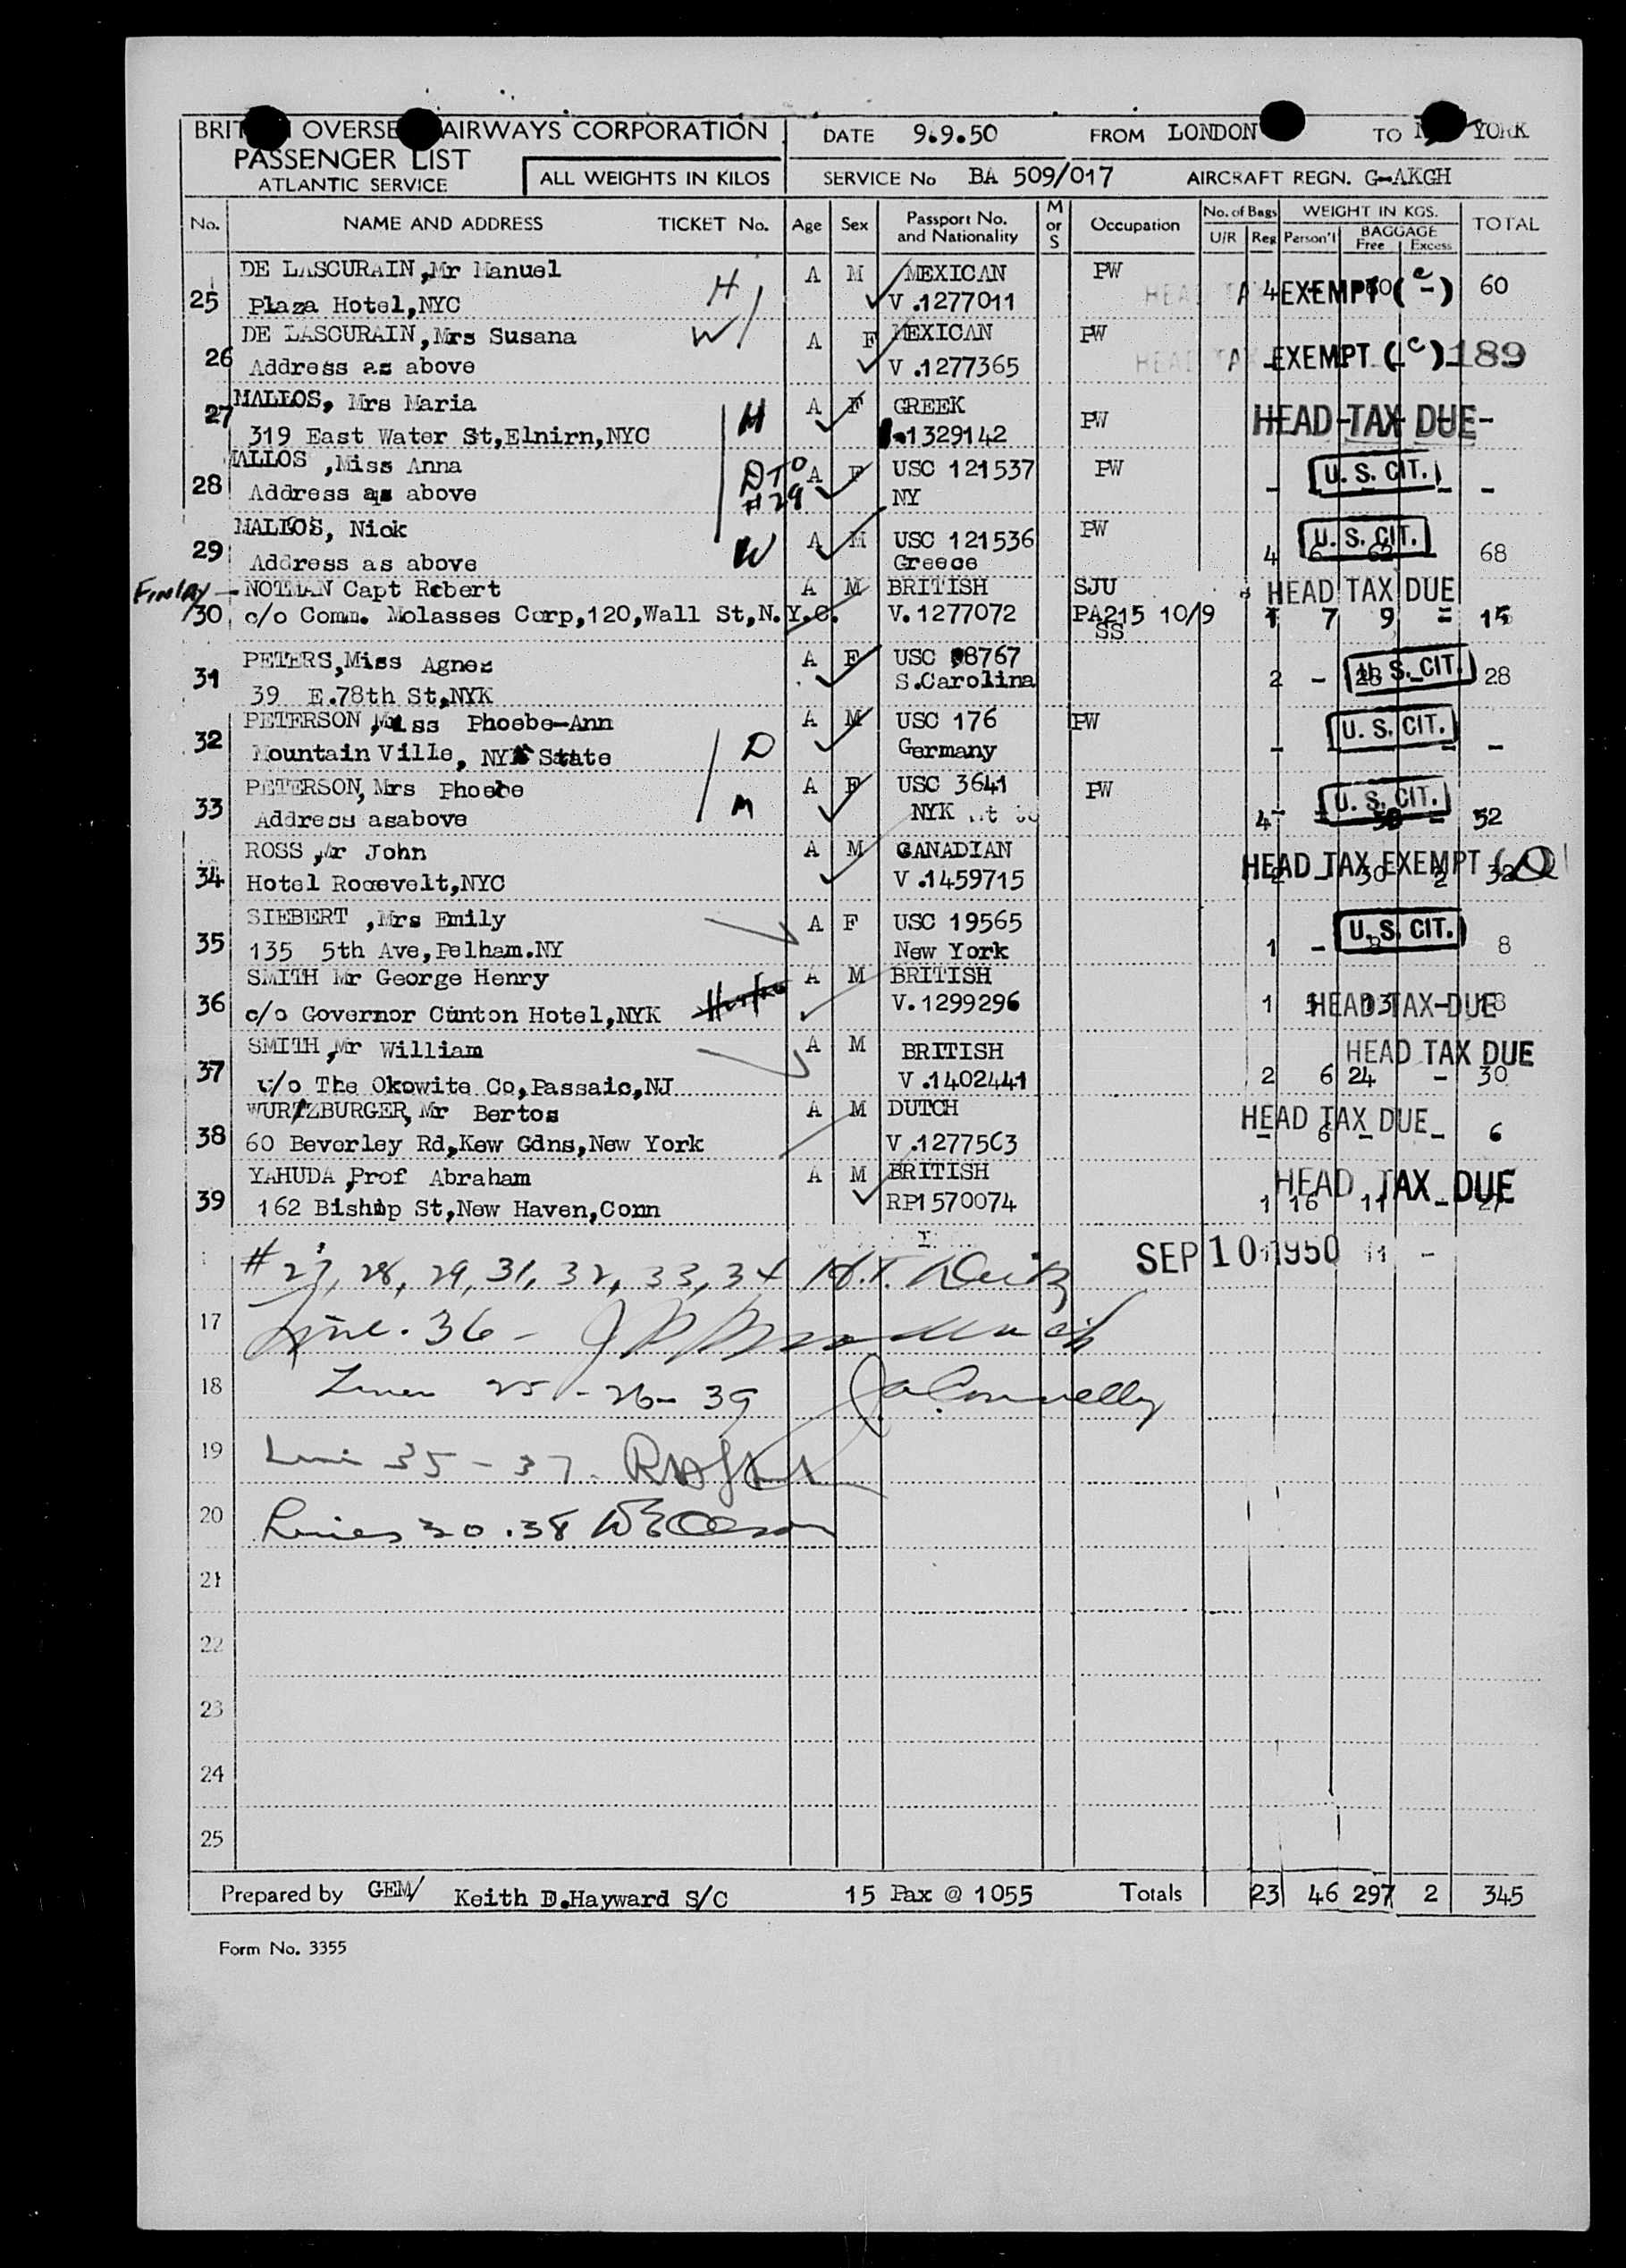 BRIT OVERSE AIRWAYS CORPORATION
PASSENGER LIST
ATLANTIC SERVICE
ALL WEIGHTS IN KILOS
DATE 9.9.50 FROM LONDON TO YORK
SERVICE No BA 509/017 AIRCRAFT REGN. G-AKGH
No. NAME AND ADDRESS TICKET No. Age Sex Passport No. and Nationality M or S Occupation No. of Bags U/R Reg WEIGHT IN KGS. Person'l BAGGAGE Free Excess TOTAL
DE LASCURAIN, Mr Manuel H A M MEXICAN PW
25 Plaza Hotel, NYC V.1277011 4 EXEMPT (e) 60
DE LASCURAIN, Mrs Susana W A F MEXICAN PW
26 Address as above V.1277365 HEAD TAX EXEMPT (c) 189
MALLOS, Mrs Maria M A F GREEK PW HEAD TAX DUE
27 319 East Water St, Elnirn, NYC 1329142
MALLOS, Miss Anna D TO #29 A F USC 121537 PW U. S. CIT.
28 Address as above NY - - -
MALLOS, Nick A M USC 121536 PW U. S. CIT.
29 Address as above W Greece 4 6 62 68
Finlay - NOTMAN Capt Robert A M BRITISH SJU HEAD TAX DUE
30 c/o Comm. Molasses Corp, 120, Wall St, N.Y.C. V.1277072 PA215 10/9 SS 1 7 9 -
PETERS, Miss Agnes A F USC 8767
31 39 E.78th St, NYK S.Carolina 2 - 28 U. S. CIT. 28
PETERSON, Miss Phoebe-Ann A M USC 176 PW U. S. CIT.
32 Mountain Ville, NY State D Germany - - -
PETERSON, Mrs Phoebe A F USC 3641 PW U. S. CIT.
33 Address asabove M NYK 4 - 52
ROSS, Mr John A M CANADIAN HEAD TAX EXEMPT
34 Hotel Roosevelt, NYC V.1459715 2 - 30 2 32
SIEBERT, Mrs Emily A F USC 19565 U. S. CIT.
35 135 5th Ave, Pelham. NY New York 1 - 8 8
SMITH Mr George Henry A M BRITISH
36 c/o Governor Cunton Hotel, NYK V.1299296 1 5 13 HEAD TAX DUE 18
SMITH, Mr William A M BRITISH HEAD TAX DUE
37 c/o The Okowite Co, Passaic, NJ V.1402441 2 6 24 - 30
WURTZBURGER, Mr Bertos A M DUTCH HEAD TAX DUE
38 60 Beverley Rd, Kew Gdns, New York V.1277563 - 6 - - 6
YAHUDA, Prof Abraham A M BRITISH HEAD TAX DUE
39 162 Bishop St, New Haven, Conn RP1570074 1 16 11 - 27
# 27, 28, 29, 31, 32, 33, 34 SEP 10 1950
17 Line. 36 -
18 Lines 25 - 26 - 39 Connelly
19 Line 35 - 37.
20 Lines 30. 38
21
22
23
24
25
Prepared by GEM/ Keith D.Hayward S/C 15 Pax @ 1055 Totals 23 46 297 2 345
Form No. 3355